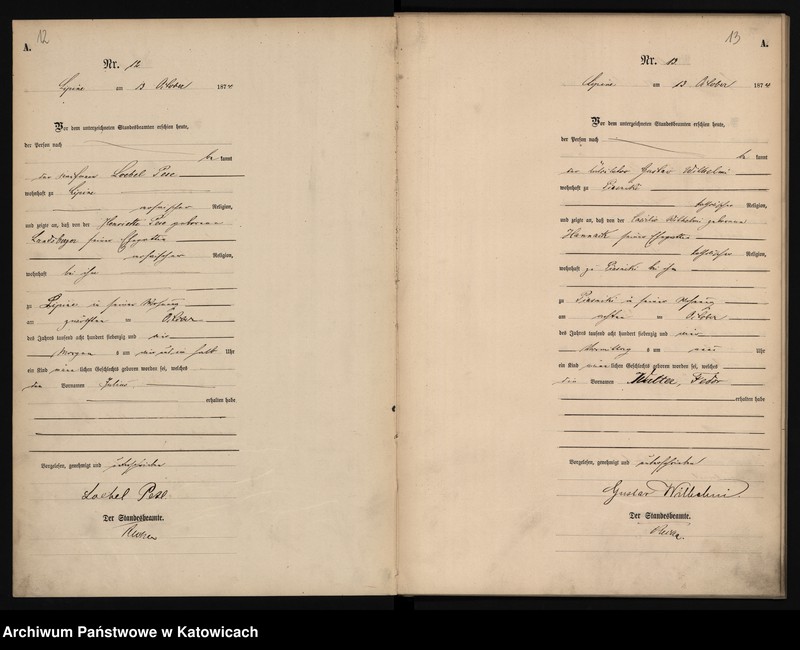 12
A.
Nr. 12
Lipine am 13 October 1874
Vor dem unterzeichneten Standesbeamten erschien heute,
der Person nach
be kannt
der Loebel Pese
wohnhaft zu Lipine
mosaischer Religion,
und zeigte an, daß von der Henriette Pese geborene
Landsberger seiner Ehegattin
mosaischer Religion,
wohnhaft bei ihm
zu Lipine in seiner Wohnung
am zwölften October
des Jahres tausend acht hundert siebenzig und vier
Morgens um vier ein halb Uhr
ein Kind männlichen Geschlechts geboren worden sei, welches
den Vornamen Julius
erhalten habe
Vorgelesen, genehmigt und unterschrieben
Loebel Pese
Der Standesbeamte.
13
A.
Nr. 13
Lipine am 13 October 1874
Vor dem unterzeichneten Standesbeamten erschien heute,
der Person nach
be kannt
der Gustav Wilhelmi
wohnhaft zu Piasniki
katholischer Religion,
und zeigte an, daß von der Wilhelmi geborene
seiner Ehegattin
katholischer Religion,
wohnhaft zu Piasniki bei ihm
zu Piasniki in seiner Wohnung
am achten October
des Jahres tausend acht hundert siebenzig und vier
Vormittag um neun Uhr
ein Kind männlichen Geschlechts geboren worden sei, welches
die Vornamen Walter, Fedor
erhalten habe
Vorgelesen, genehmigt und unterschrieben
Gustav Wilhelmi.
Der Standesbeamte.
Archiwum Państwowe w Katowicach